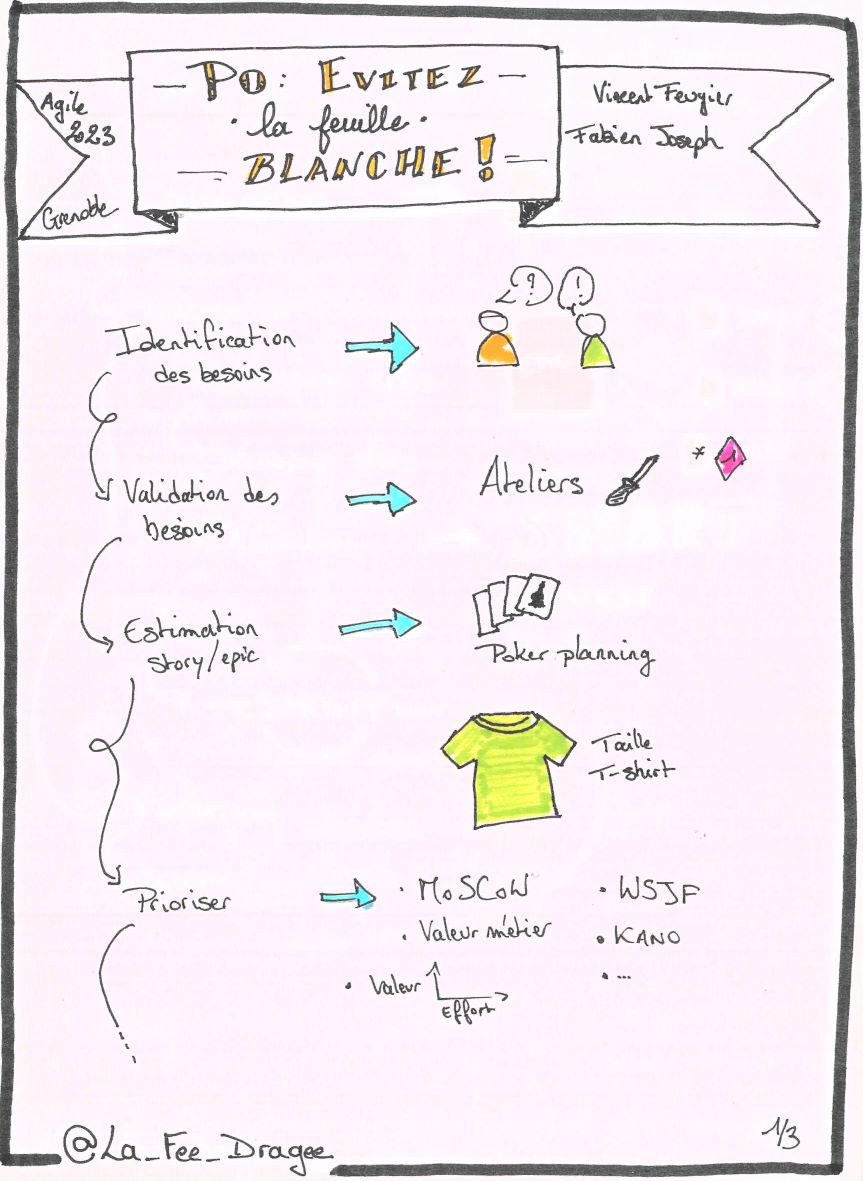 Agile
2023
Grenoble
PO: EVITEZ
la feuille
BLANCHE!
Vincent Feugier
Fabien Joseph
Identification
des besoins
? !
Validation des
besoins
Ateliers
* 1
Estimation
story/epic
Poker planning
Taille
T-shirt
Prioriser
• MoSCoW
• Valeur métier
• Valeur
Effort
• WSJF
• KANO
• ...
@La_Fee_Dragee
1/3